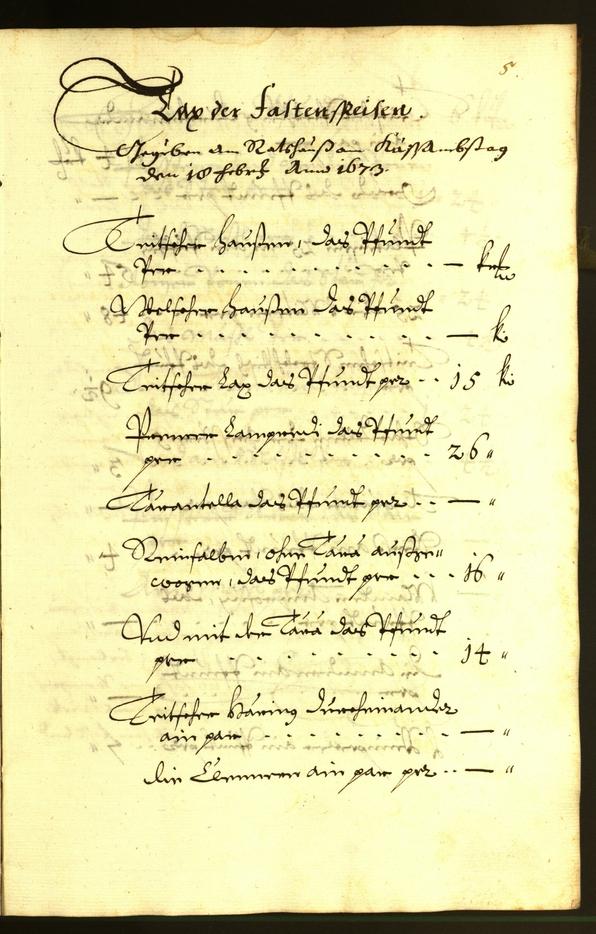 5.
Tax der Fastenspeisen.
Gegeben am Rathhauß am Käßsambstag
den 18 Febr: Anno 1673.
Teitscher Haußen, das Pfundt
Per — kr
Welscher Haußen das Pfundt
Per — kr
Teitscher Lax das Pfundt per 15 kr
Lampredi das Pfundt
per 26 "
Tarantella das Pfundt per — "
Reinfalben, ohne Tara
das Pfundt per 16 "
Und mit der Tara das Pfundt
per 14 "
Teitscher Häring durcheinander
ain par — "
die Clennern ain par per — "